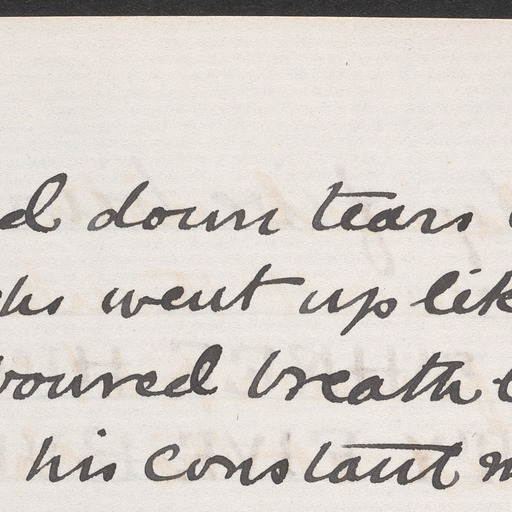 d down tears
went up lik
boured breath
his constant